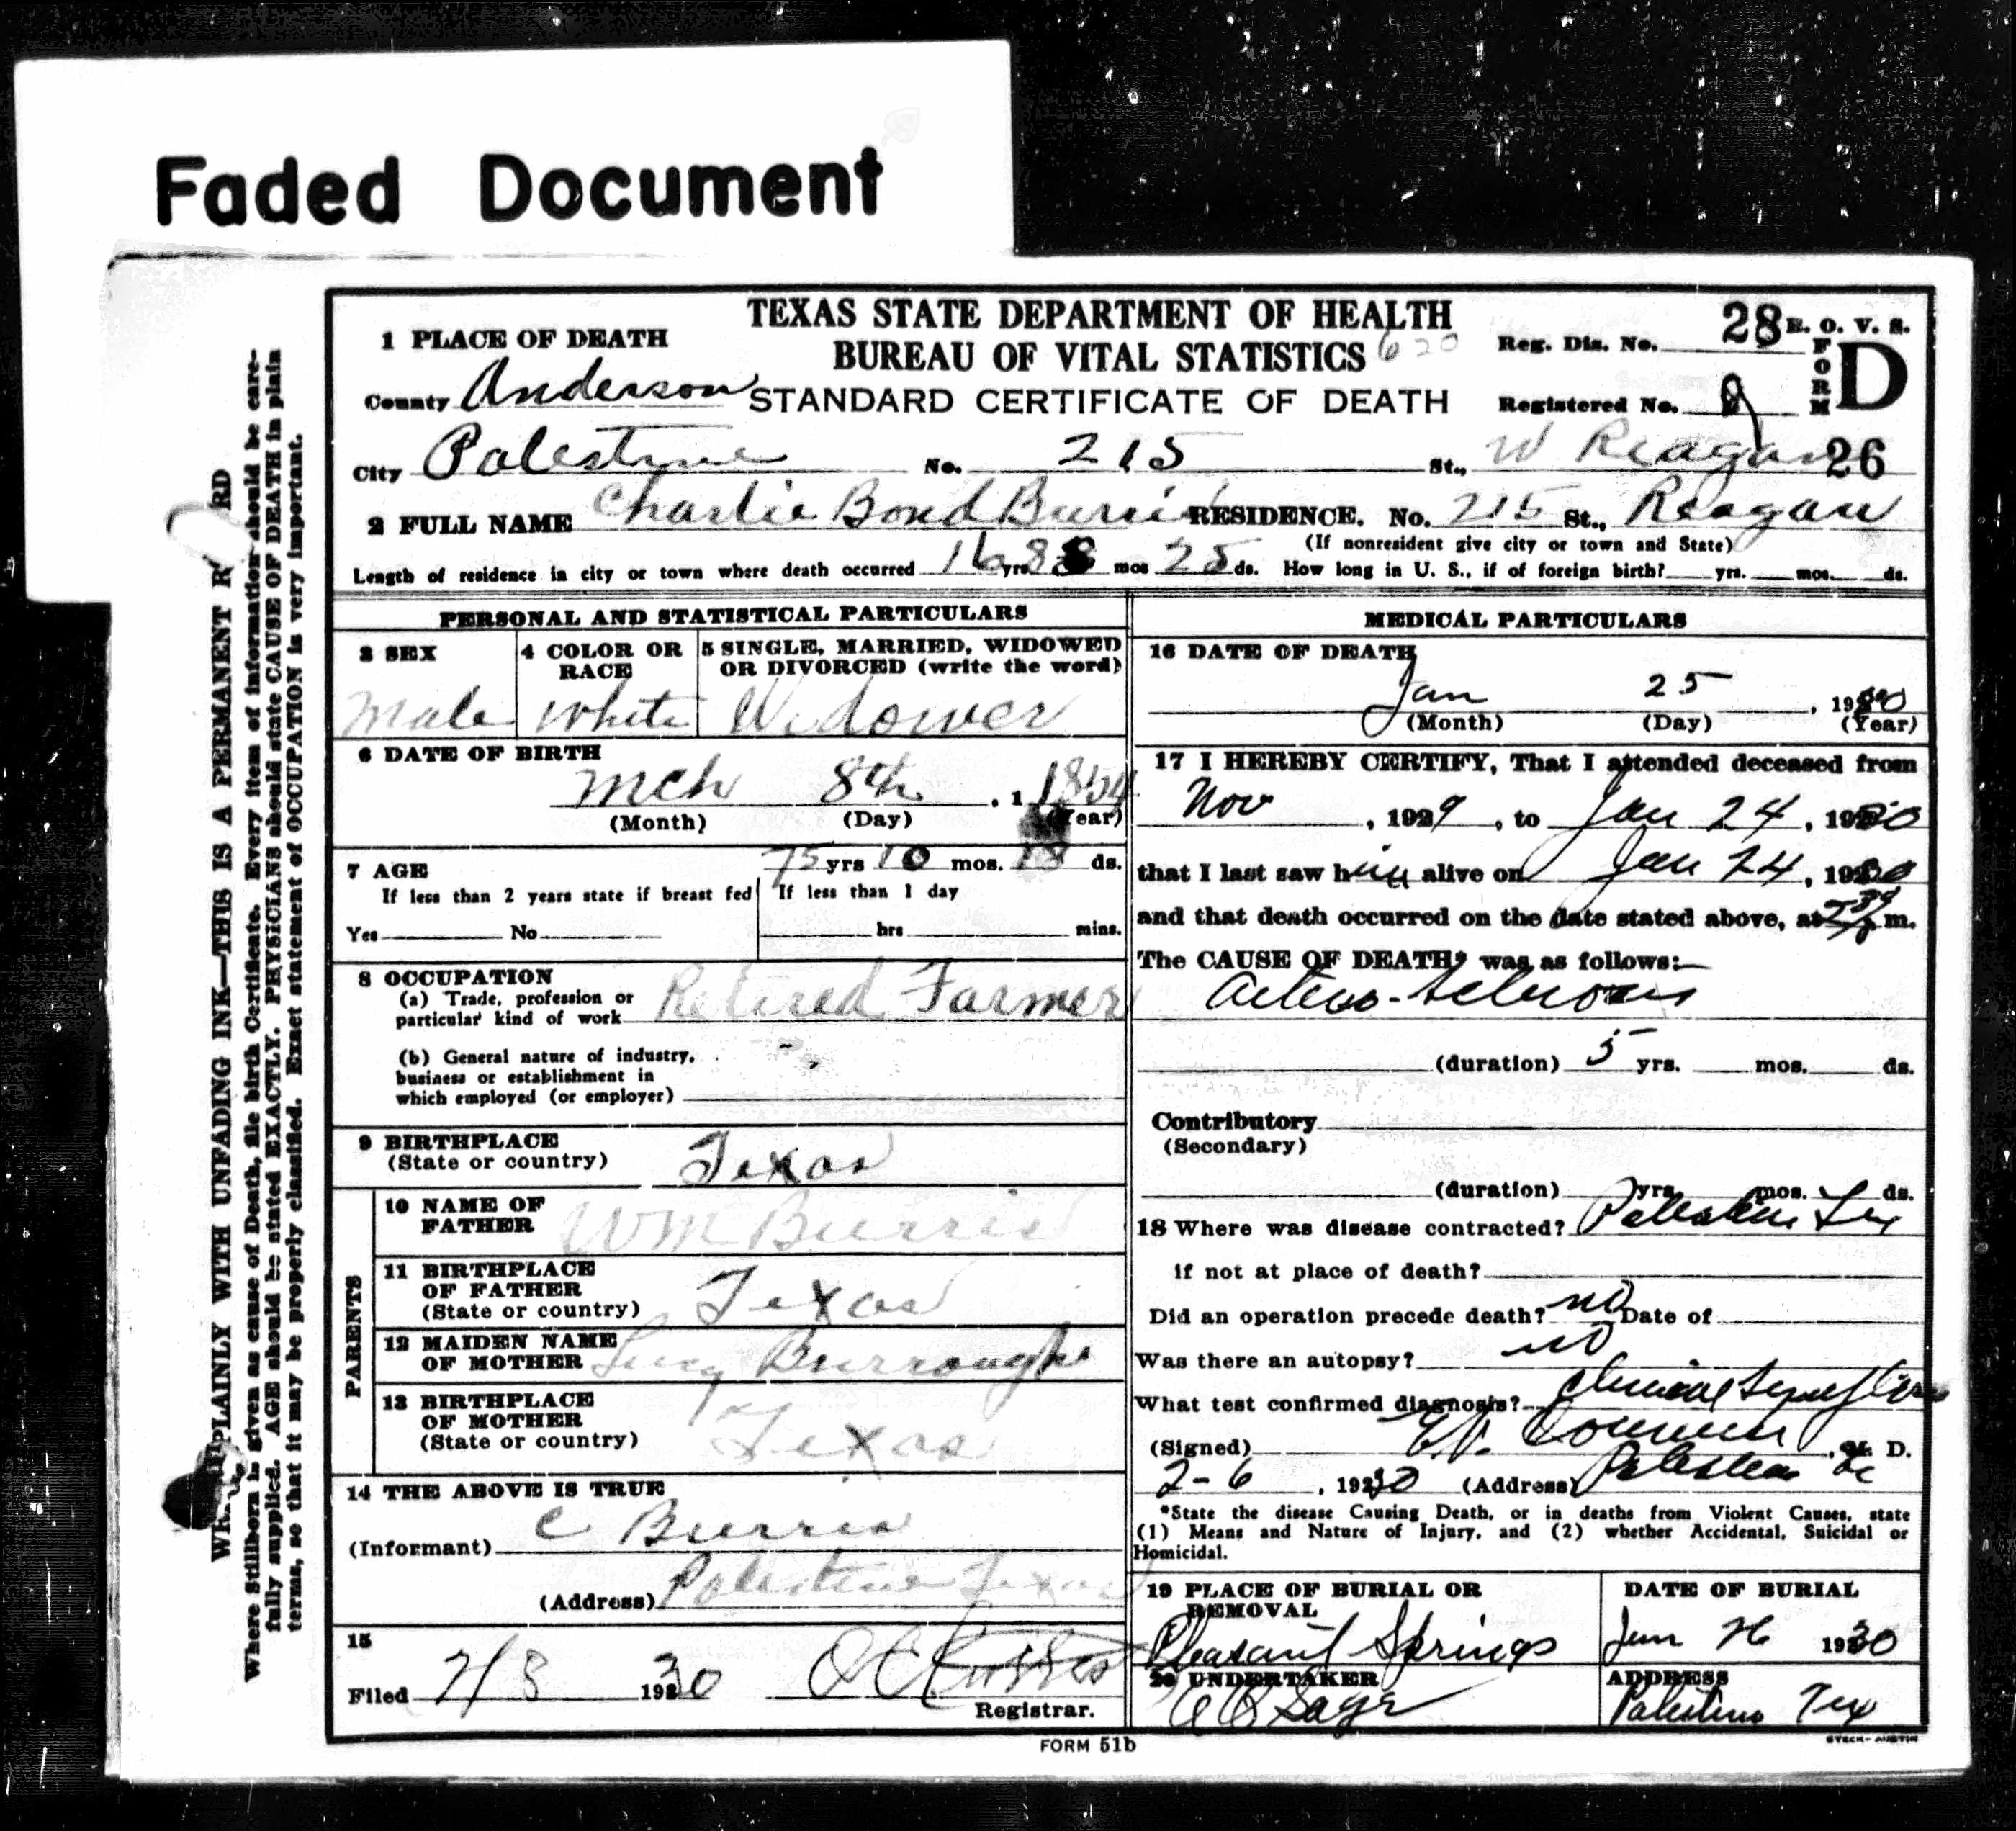 Faded Document
TEXAS STATE DEPARTMENT OF HEALTH
BUREAU OF VITAL STATISTICS 620
STANDARD CERTIFICATE OF DEATH
Reg. Dis. No. 28 B. O. V. S.
FORM D
Registered No.
26
1 PLACE OF DEATH
County Anderson
City Palestine No. 215 St., W Reagan
2 FULL NAME Charlie Bond Burris RESIDENCE. No. 215 St., Reagan
(If nonresident give city or town and State)
Length of residence in city or town where death occurred 16 yrs 8 mos 25 ds. How long in U. S., if of foreign birth? yrs. mos. ds.
PERSONAL AND STATISTICAL PARTICULARS
3 SEX
Male
4 COLOR OR RACE
White
5 SINGLE, MARRIED, WIDOWED
OR DIVORCED (write the word)
Widower
6 DATE OF BIRTH
Mch 8th , 1 1854
(Month) (Day) (Year)
7 AGE 75 yrs 10 mos. 18 ds.
If less than 2 years state if breast fed
Yes No
If less than 1 day
hrs mins.
8 OCCUPATION
(a) Trade, profession or
particular kind of work Retired Farmer
(b) General nature of industry,
business or establishment in
which employed (or employer)
9 BIRTHPLACE
(State or country) Texas
PARENTS
10 NAME OF
FATHER Wm Burris
11 BIRTHPLACE
OF FATHER
(State or country) Texas
12 MAIDEN NAME
OF MOTHER Lucy Burroughs
13 BIRTHPLACE
OF MOTHER
(State or country) Texas
14 THE ABOVE IS TRUE
(Informant) C Burris
(Address) Palestine Texas
15
Filed 2/8 1930
Registrar.
MEDICAL PARTICULARS
16 DATE OF DEATH
Jan 25 , 1930
(Month) (Day) (Year)
17 I HEREBY CERTIFY, That I attended deceased from
Nov , 1929 , to Jan 24 , 1930
that I last saw him alive on Jan 24 , 1930
and that death occurred on the date stated above, at m.
The CAUSE OF DEATH* was as follows:
Arterio-Sclerosis
(duration) 5 yrs. mos. ds.
Contributory
(Secondary)
(duration) yrs. mos. ds.
18 Where was disease contracted? Palestine Tex
if not at place of death?
Did an operation precede death? no Date of
Was there an autopsy? no
What test confirmed diagnosis? Clinical Symptoms
(Signed) M. D.
2-6 , 1930 (Address) Palestine
*State the disease Causing Death, or in deaths from Violent Causes, state
(1) Means and Nature of Injury, and (2) whether Accidental, Suicidal or
Homicidal.
19 PLACE OF BURIAL OR
REMOVAL
Pleasant Springs
DATE OF BURIAL
Jan 26 1930
20 UNDERTAKER
ADDRESS
Palestine Tex
FORM 51b
STECK-AUSTIN
PLAINLY WITH UNFADING INK—THIS IS A PERMANENT
Where Stillborn is given as cause of Death, file birth Certificate. Every item of information should be care-
fully supplied. AGE should be stated EXACTLY. PHYSICIANS should state CAUSE OF DEATH in plain
terms, so that it may be properly classified. Exact statement of OCCUPATION is very important.